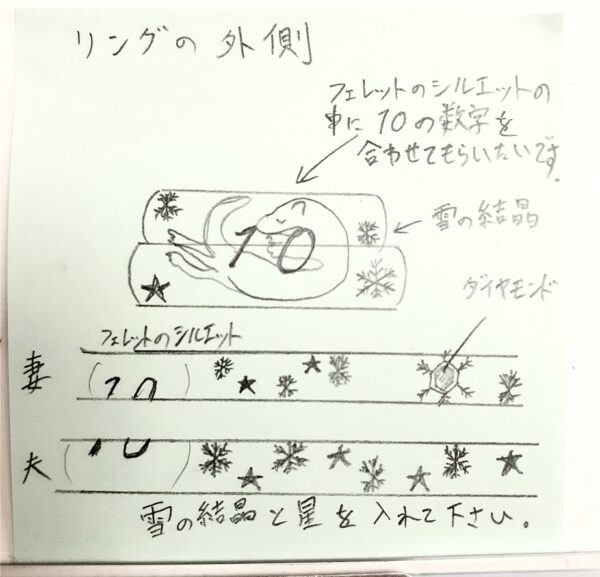 リングの外側
フェレットのシルエットの
中に10の数字を
合わせてもらいたいです.
雪の結晶
10
ダイヤモンド
フェレットのシルエット
妻
(10)
夫
(10)
雪の結晶と星を入れて下さい。